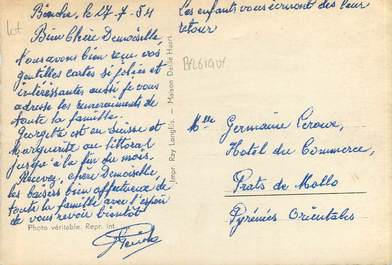 Binche, le 27-7-54
Bien Chère Demoiselle
Nous avons bien reçu vos
gentilles cartes si jolies et
intéressantes aussi je vous
adresse les
toute la famille.
Georgette est en Suisse et
Marguerite au littoral
jusqu'à la fin du mois.
Recevez, chère Demoiselle,
les baisers bien affectueux de
toute la famille avec l'espoir
de vous revoir bientôt
Photo véritable. Repr. Int.
Impr. Ray Langlis. — Maison Delille Haart.
Les enfants vous écriront dès leur
retour
BELGIQUE
Mlle Germaine Leroux,
Hotel du Commerce,
Prats de Mollo
Pyrénées Orientales